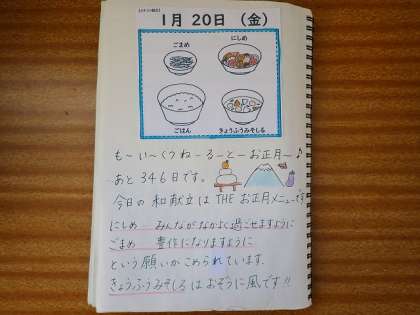 1月 20日 (金)
ごまめ
にしめ
ごはん
きょうふうみそしる
も〜い〜くつね〜る〜と〜お正月〜♪
あと346日です。
今日の和献立はTHEお正月メニューです
にしめ みんながなかよく過ごせますように
ごまめ 豊作になりますように
という願いがこめられています。
きょうふうみそしるはおぞうに風です!!